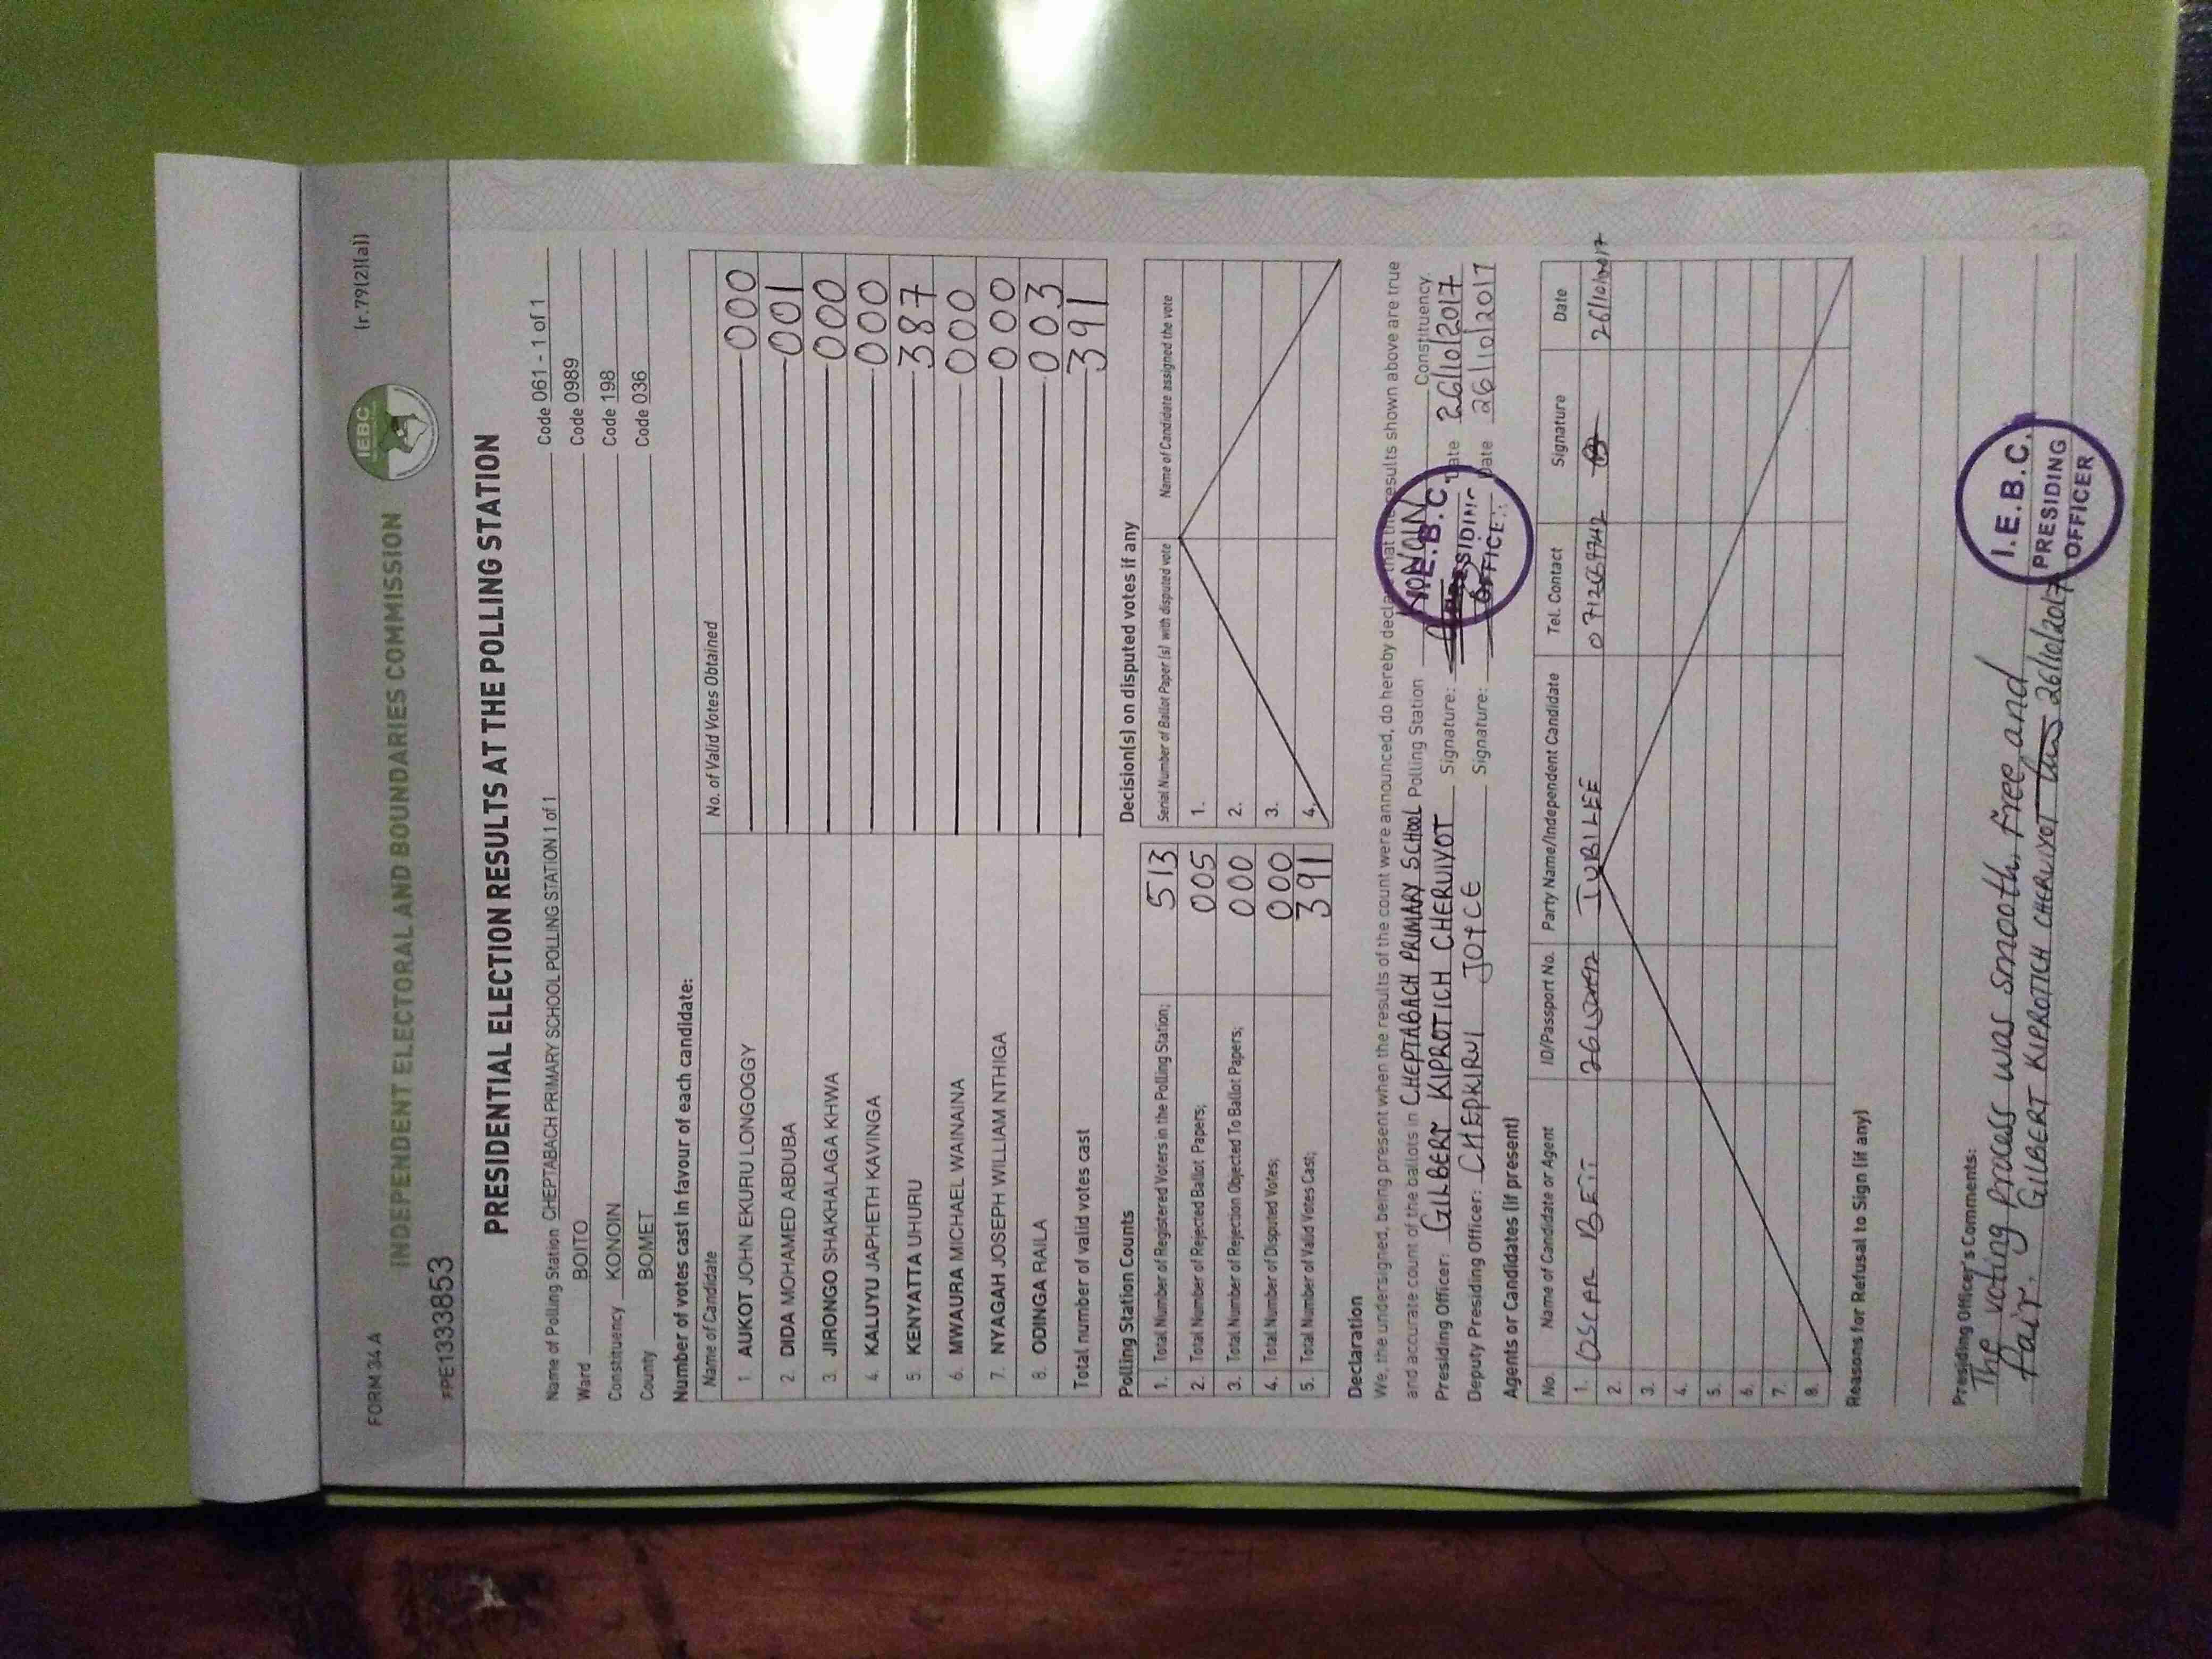 FORM 34 A (r.79(2)(a))
INDEPENDENT ELECTORAL AND BOUNDARIES COMMISSION
IEBC
*PE1333853
PRESIDENTIAL ELECTION RESULTS AT THE POLLING STATION
Name of Polling Station CHEPTABACH PRIMARY SCHOOL POLLING STATION 1 of 1 Code 061 - 1 of 1
Ward BOITO Code 0989
Constituency KONOIN Code 198
County BOMET Code 036
Number of votes cast in favour of each candidate:
Name of Candidate No. of Valid Votes Obtained
1. AUKOT JOHN EKURU LONGOGGY 000
2. DIDA MOHAMED ABDUBA 001
3. JIRONGO SHAKHALAGA KHWA 000
4. KALUYU JAPHETH KAVINGA 000
5. KENYATTA UHURU 387
6. MWAURA MICHAEL WAINAINA 000
7. NYAGAH JOSEPH WILLIAM NTHIGA 000
8. ODINGA RAILA 003
Total number of valid votes cast 391
Polling Station Counts
1. Total Number of Registered Voters in the Polling Station; 513
2. Total Number of Rejected Ballot Papers; 005
3. Total Number of Rejection Objected To Ballot Papers; 000
4. Total Number of Disputed Votes; 000
5. Total Number of Valid Votes Cast; 391
Decision(s) on disputed votes if any
Serial Number of Ballot Paper (s) with disputed vote Name of Candidate assigned the vote
1.
2.
3.
4.
Declaration
We, the undersigned, being present when the results of the count were announced, do hereby declare that the results shown above are true
and accurate count of the ballots in CHEPTABACH PRIMARY SCHOOL Polling Station KONOIN Constituency.
Presiding Officer: GILBERT KIPROTICH CHERUIYOT Signature: Date 26/10/2017
Deputy Presiding Officer: CHEPKIRUI JOYCE Signature: Date 26/10/2017
I.E.B.C.
PRESIDING
OFFICER
Agents or Candidates (if present)
No. Name of Candidate or Agent ID/Passport No. Party Name/Independent Candidate Tel. Contact Signature Date
1. OSCAR BETT JUBILEE 26/10/2017
2.
3.
4.
5.
6.
7.
8.
Reasons for Refusal to Sign (if any)
Presiding Officer's Comments:
The voting process was smooth, free and
fair. GILBERT KIPROTICH CHERUIYOT 26/10/2017
I.E.B.C.
PRESIDING
OFFICER